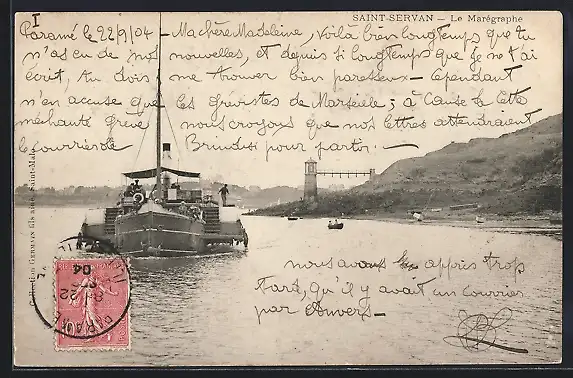 I
SAINT-SERVAN – Le Marégraphe
Paramé le 22/9/04 – Ma chère Madeleine, Voilà bien longtemps que tu
n'as eu de nos nouvelles, et depuis si longtemps que je ne t'ai
écrit, tu dois me trouver bien paresseux – Cependant
n'en accuse que les grévistes de Marseille; à cause de cette
méchante grève nous croyons que nos lettres attendraient
le courrier de Brindisi pour partir. –
nous avons su après trop
tard, qu'il y avait un courrier
par Anvers. –
Collection GERMAIN fils aîné, Saint-Malo
PARAMÉ
22
04
10